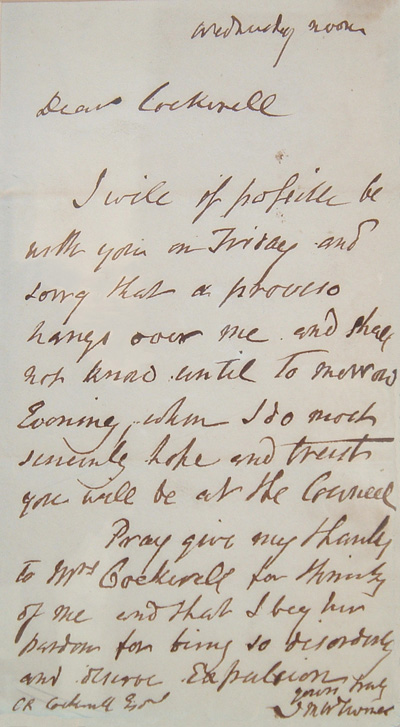 Wednesday noon
Dear Cockerell
I will if possible be
with you on Friday and
sorry that a proviso
hangs over me and shall
not know until To morrow
Evening, when I do most
sincerely hope and trust
you will be at the Council
Pray give my thanks
to Mrs Cockerell for thinking
of me and that I beg her
pardon for being so disorderly
and deserve Expulsion
Yours truly
CR Cockerell Esqr
J M W Turner